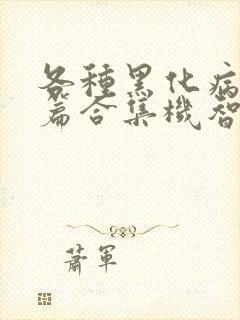 各種黑化病
篇合集機智
蕭軍